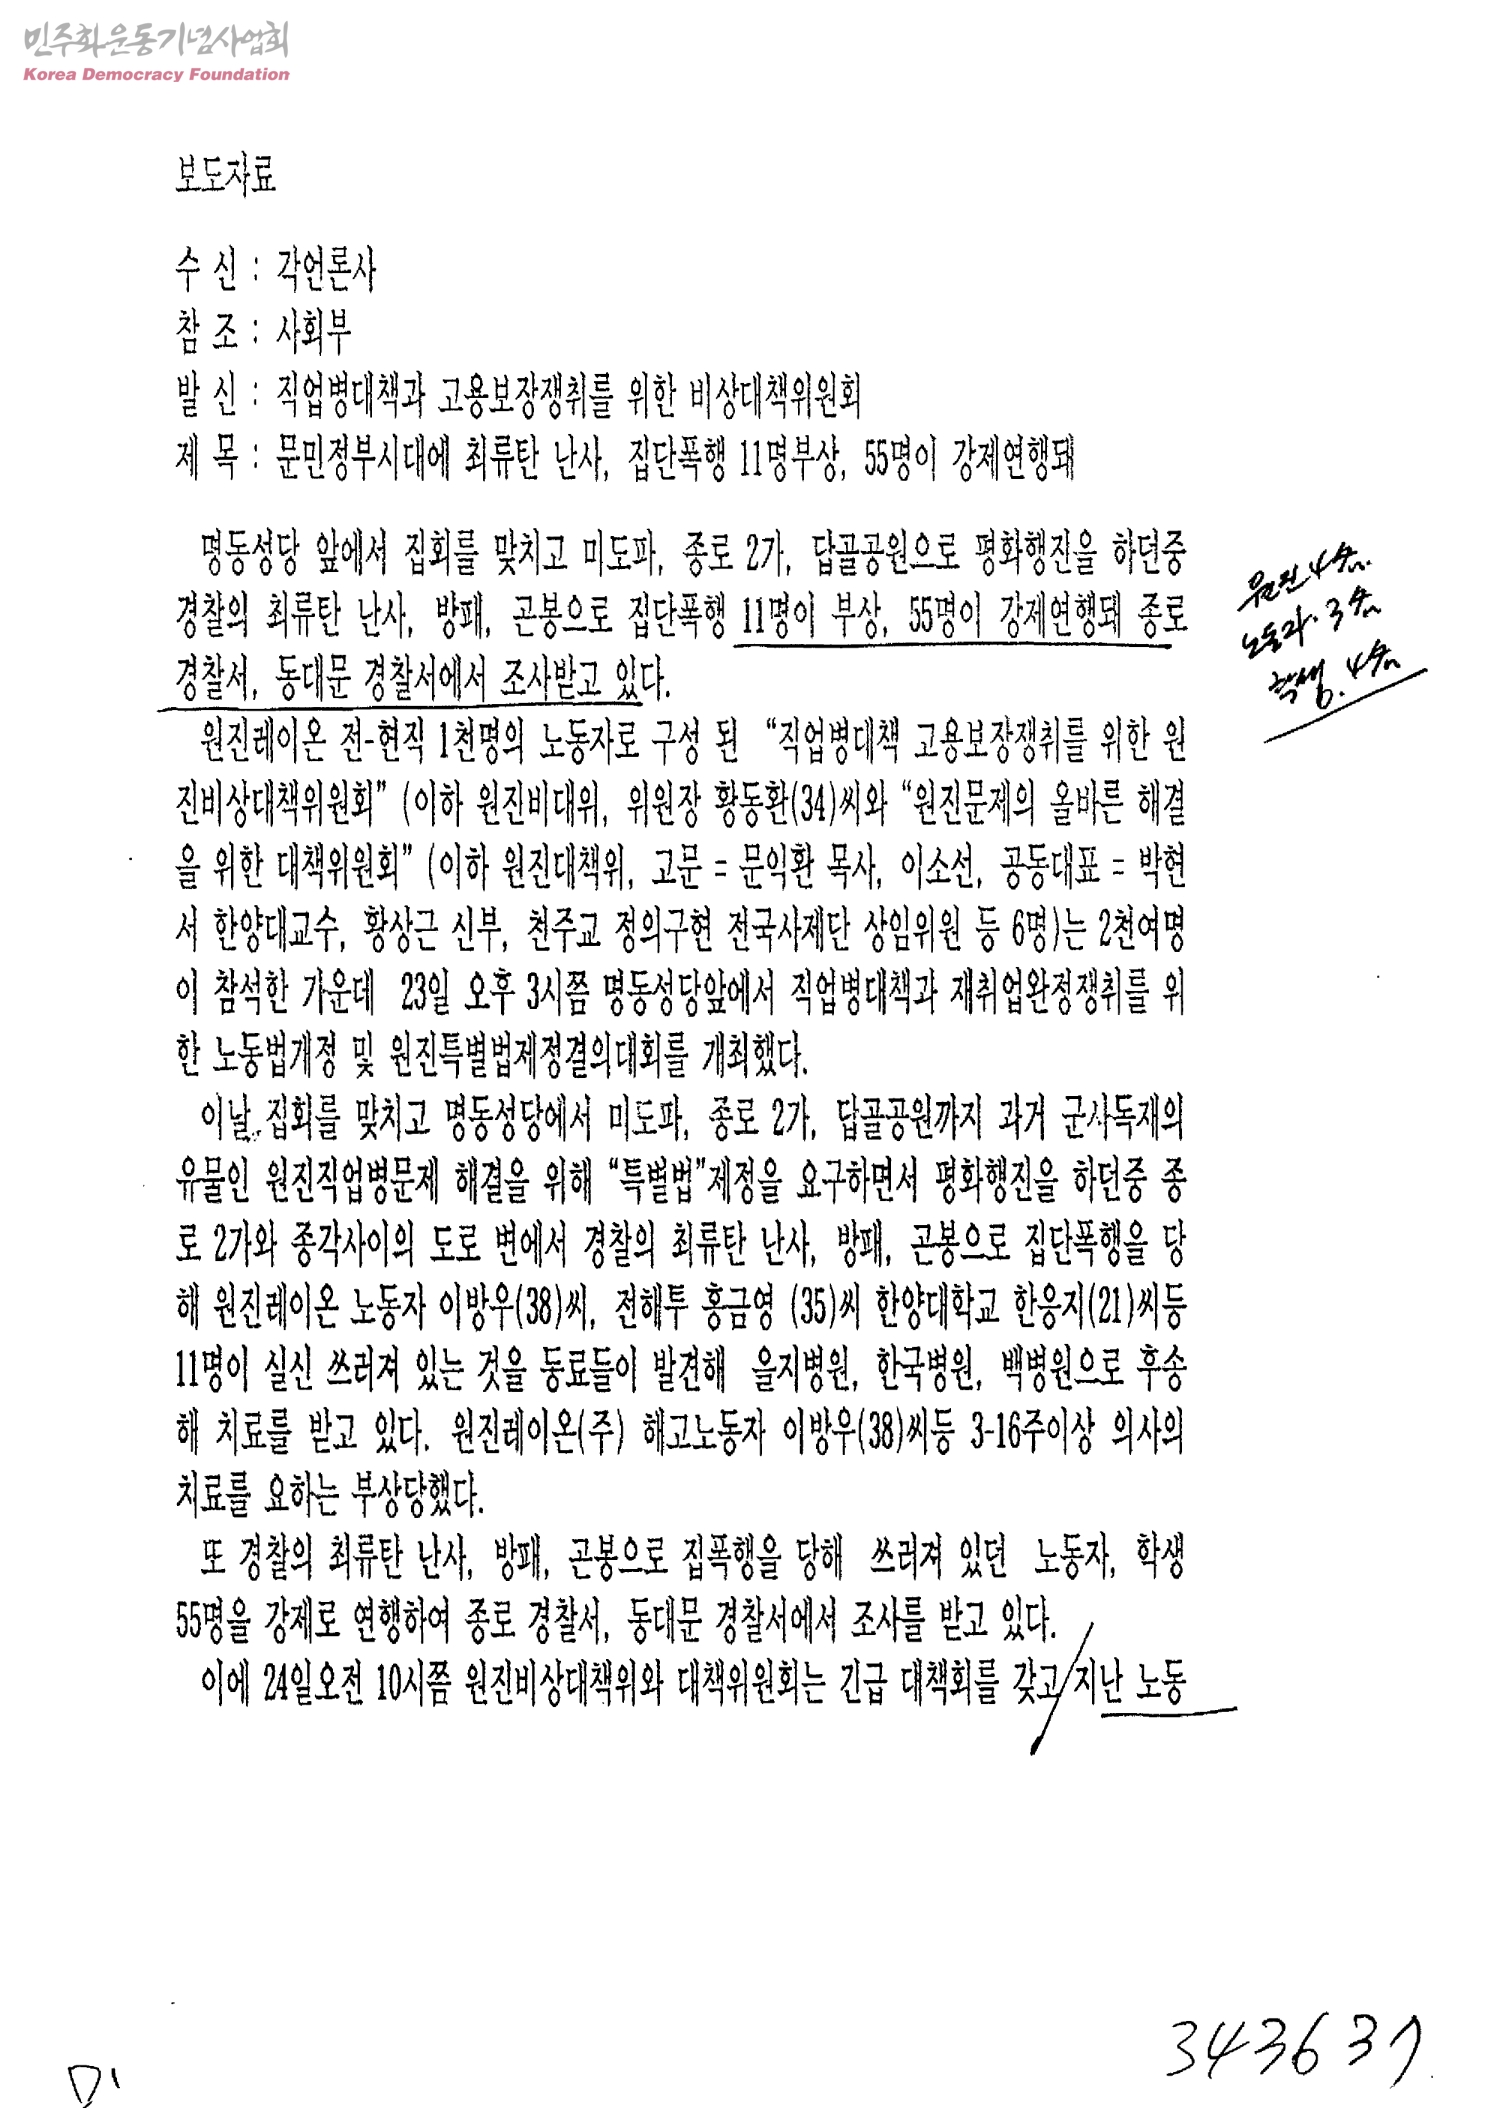 민주화운동기념사업회
Korea Democracy Foundation
보도자료
수 신 : 각언론사
참 조 : 사회부
발 신 : 직업병대책과 고용보장쟁취를 위한 비상대책위원회
제 목 : 문민정부시대에 최류탄 난사, 집단폭행 11명부상, 55명이 강제연행돼
명동성당 앞에서 집회를 맞치고 미도파, 종로 2가, 답골공원으로 평화행진을 하던중
경찰의 최류탄 난사, 방패, 곤봉으로 집단폭행 11명이 부상, 55명이 강제연행돼 종로
경찰서, 동대문 경찰서에서 조사받고 있다.
원진 4名
노동자. 3名
학생. 4名
원진레이온 전-현직 1천명의 노동자로 구성 된 “직업병대책 고용보장쟁취를 위한 원
진비상대책위원회” (이하 원진비대위, 위원장 황동환(34)씨와 “원진문제의 올바른 해결
을 위한 대책위원회” (이하 원진대책위, 고문 = 문익환 목사, 이소선, 공동대표 = 박현
서 한양대교수, 황상근 신부, 천주교 정의구현 전국사제단 상임위원 등 6명)는 2천여명
이 참석한 가운데 23일 오후 3시쯤 명동성당앞에서 직업병대책과 재취업완정쟁취를 위
한 노동법개정 및 원진특별법제정결의대회를 개최했다.
이날 집회를 맞치고 명동성당에서 미도파, 종로 2가, 답골공원까지 과거 군사독재의
유물인 원진직업병문제 해결을 위해 “특별법”제정을 요구하면서 평화행진을 하던중 종
로 2가와 종각사이의 도로 변에서 경찰의 최류탄 난사, 방패, 곤봉으로 집단폭행을 당
해 원진레이온 노동자 이방우(38)씨, 전해투 홍금영 (35)씨 한양대학교 한응지(21)씨등
11명이 실신 쓰러져 있는 것을 동료들이 발견해 을지병원, 한국병원, 백병원으로 후송
해 치료를 받고 있다. 원진레이온(주) 해고노동자 이방우(38)씨등 3-16주이상 의사의
치료를 요하는 부상당했다.
또 경찰의 최류탄 난사, 방패, 곤봉으로 집폭행을 당해 쓰러져 있던 노동자, 학생
55명을 강제로 연행하여 종로 경찰서, 동대문 경찰서에서 조사를 받고 있다.
이에 24일오전 10시쯤 원진비상대책위와 대책위원회는 긴급 대책회를 갖고 지난 노동
343637